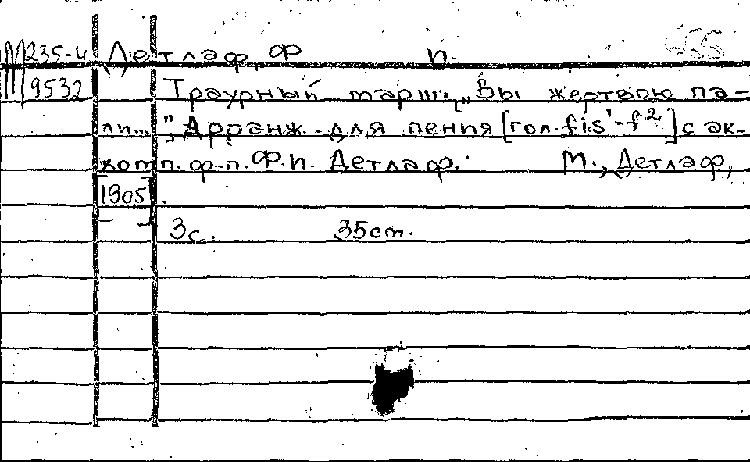 М235-4 Детлаф, Ф п.
9532 Траурный марш. „Вы жертвою па-
ли...", Арранж. для пения [гол. fis¹-f²] с ак-
комп. ф-п. Ф.п. Детлаф. М., Детлаф,
[1905].
3с. 35ст.